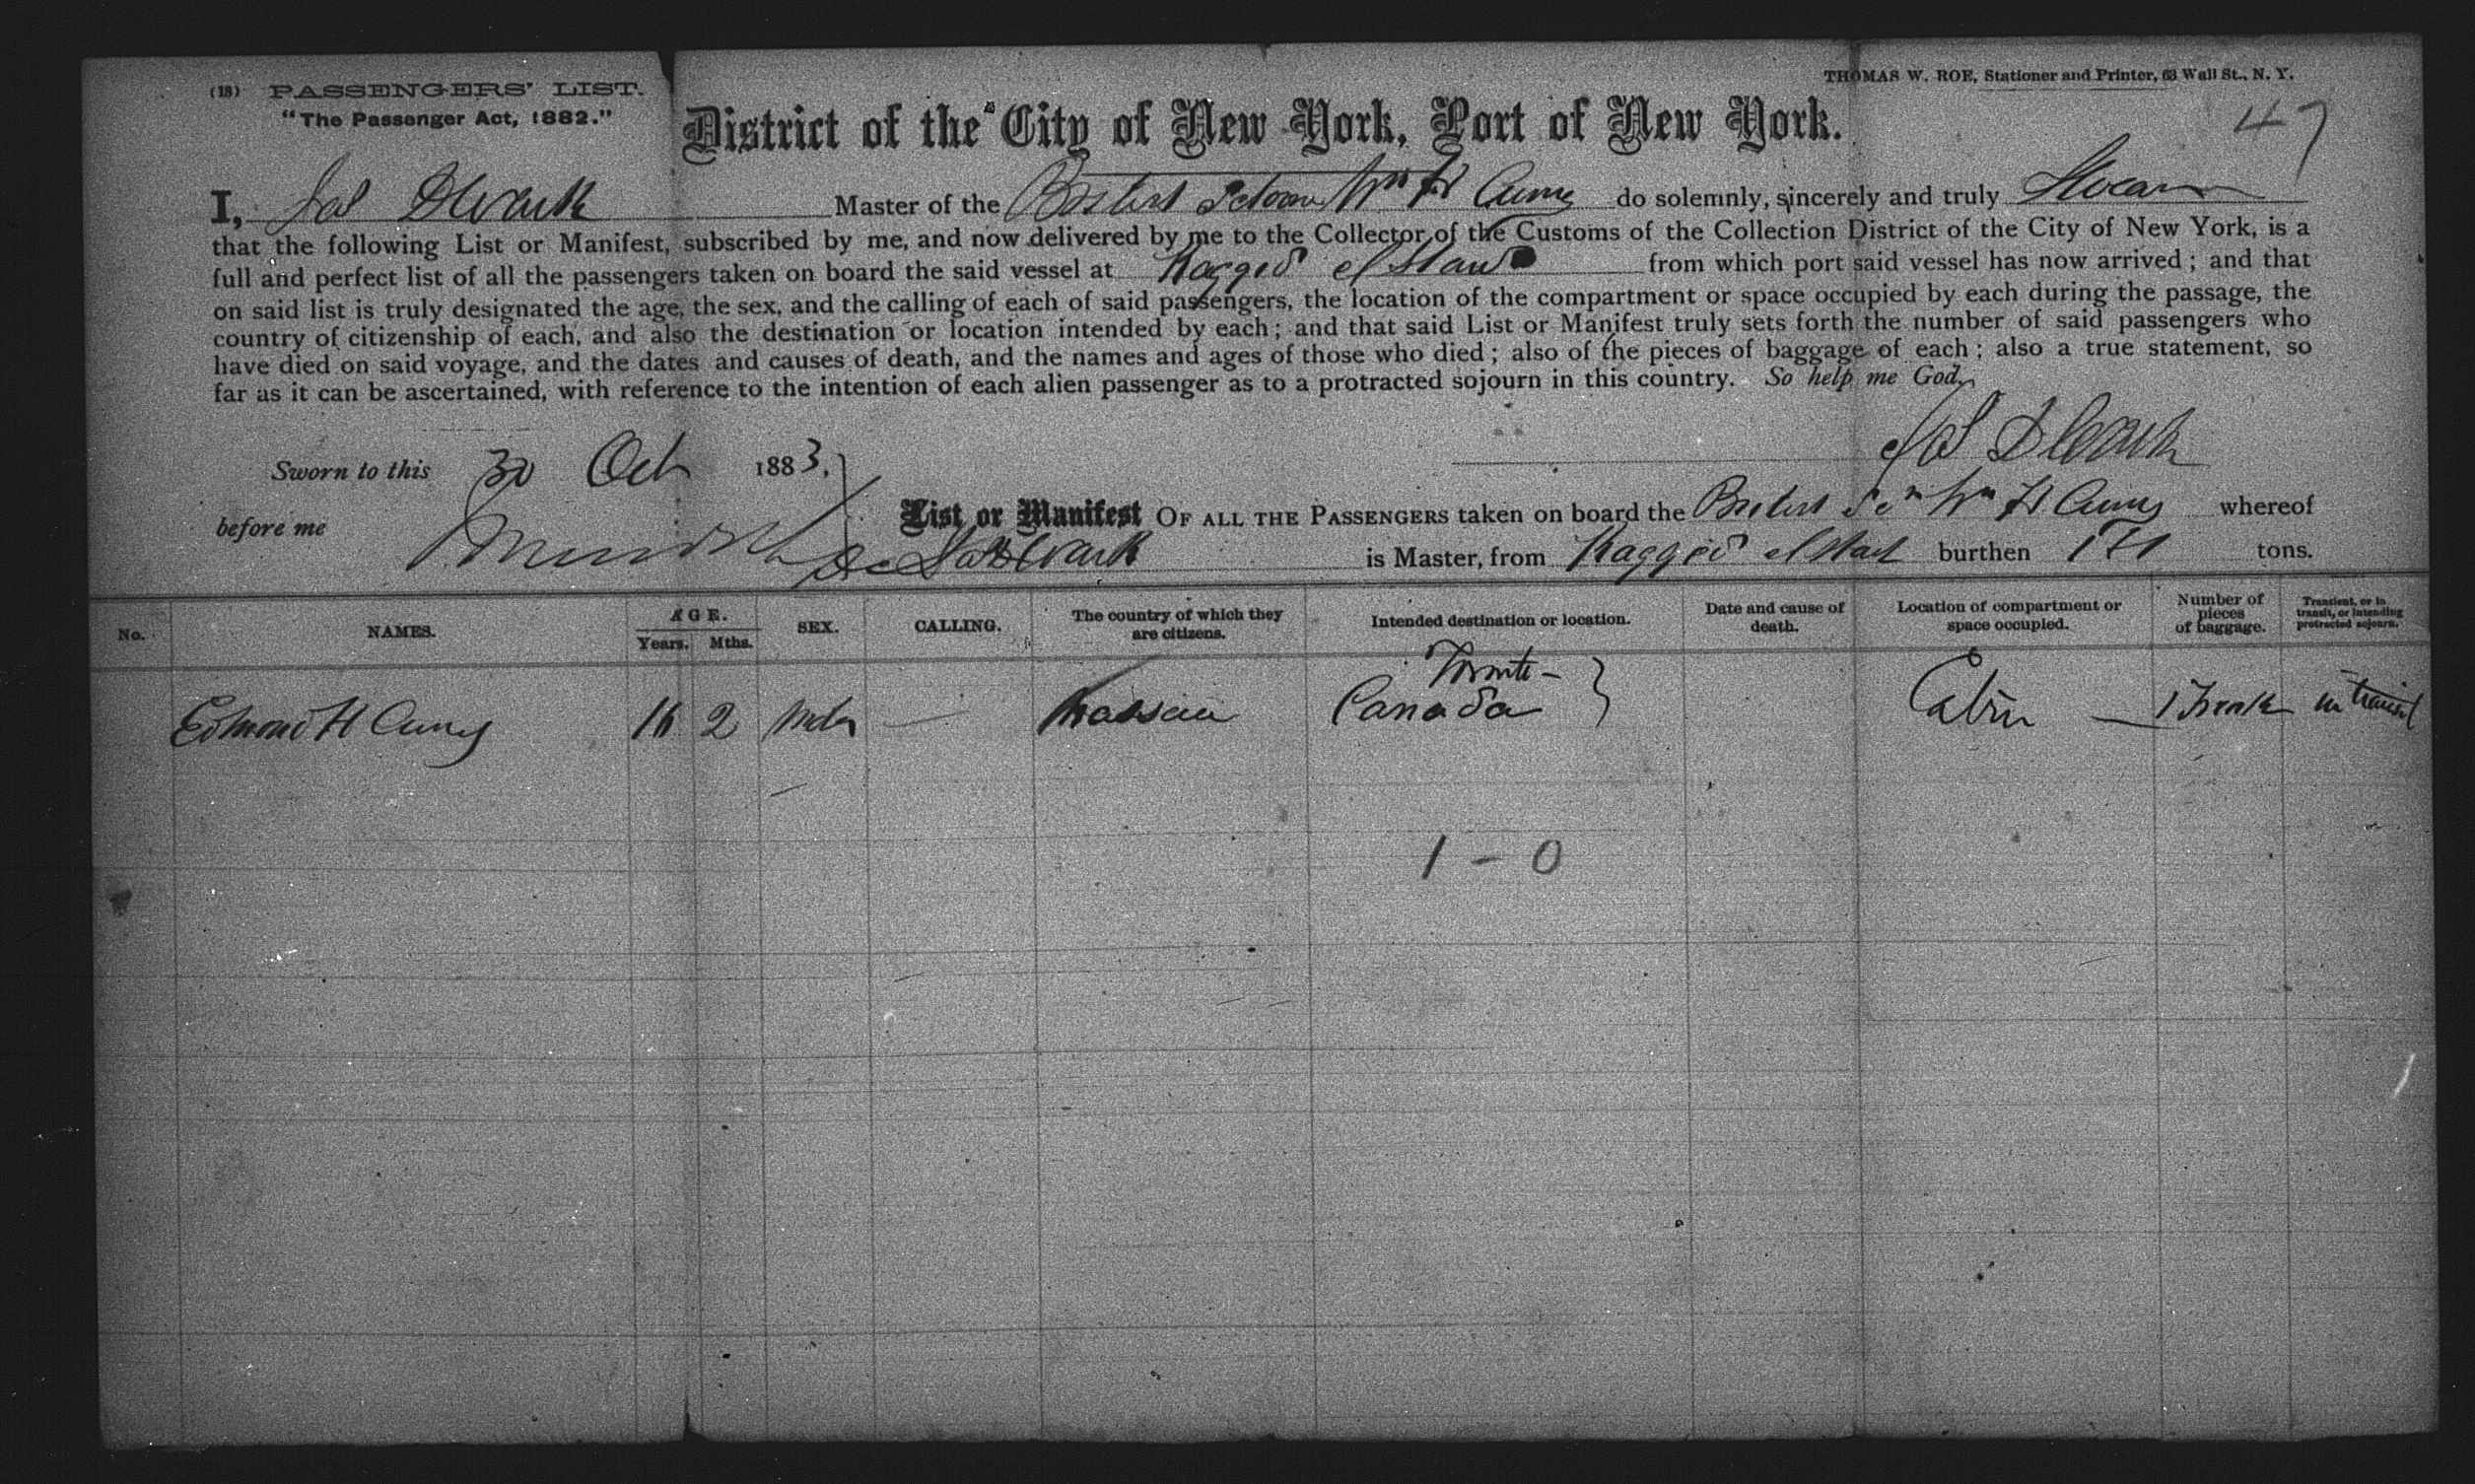 (18) PASSENGERS' LIST.
"The Passenger Act, 1882."
THOMAS W. ROE, Stationer and Printer, 63 Wall St., N. Y.
47
District of the City of New York, Port of New York.
I, Master of the Schoon Wm H do solemnly, sincerely and truly Swear
that the following List or Manifest, subscribed by me, and now delivered by me to the Collector of the Customs of the Collection District of the City of New York, is a
full and perfect list of all the passengers taken on board the said vessel at Ragged Island from which port said vessel has now arrived; and that
on said list is truly designated the age, the sex, and the calling of each of said passengers, the location of the compartment or space occupied by each during the passage, the
country of citizenship of each, and also the destination or location intended by each; and that said List or Manifest truly sets forth the number of said passengers who
have died on said voyage, and the dates and causes of death, and the names and ages of those who died; also of the pieces of baggage of each; also a true statement, so
far as it can be ascertained, with reference to the intention of each alien passenger as to a protracted sojourn in this country. So help me God.
Sworn to this 30 Oct 1883.
before me
List or Manifest OF ALL THE PASSENGERS taken on board the Wm H whereof
is Master, from Ragged Island burthen tons.
No. NAMES. AGE. Years. Mths. SEX. CALLING. The country of which they are citizens. Intended destination or location. Date and cause of death. Location of compartment or space occupied. Number of pieces of baggage. Transient, or in transit, or intending protracted sojourn.
Edmond H 16 2 Male — Nassau Toronto - Canada } Cabin — 1 Trunk in transit
1 - 0